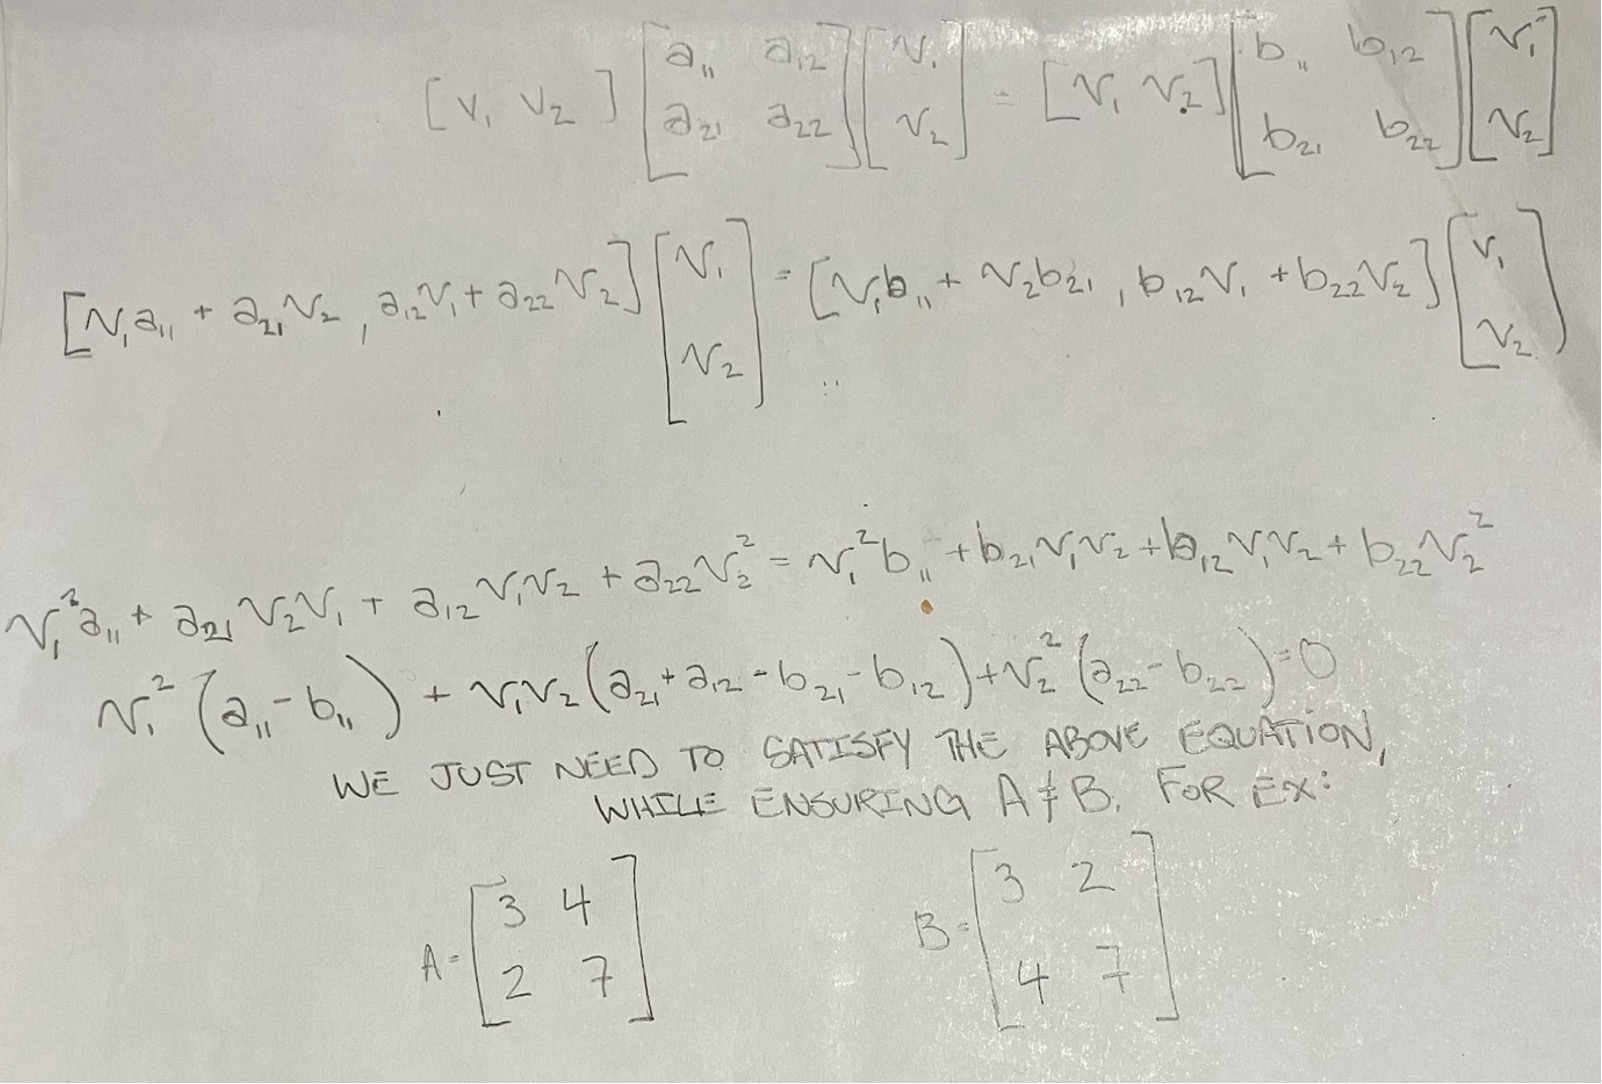 [v₁ v₂] [a₁₁ a₁₂; a₂₁ a₂₂] [v₁; v₂] = [v₁ v₂] [b₁₁ b₁₂; b₂₁ b₂₂] [v₁; v₂]
[v₁a₁₁ + a₂₁v₂, a₁₂v₁ + a₂₂v₂] [v₁; v₂] = [v₁b₁₁ + v₂b₂₁, b₁₂v₁ + b₂₂v₂] [v₁; v₂]
v₁²a₁₁ + a₂₁v₂v₁ + a₁₂v₁v₂ + a₂₂v₂² = v₁²b₁₁ + b₂₁v₁v₂ + b₁₂v₁v₂ + b₂₂v₂²
v₁²(a₁₁ - b₁₁) + v₁v₂(a₂₁ + a₁₂ - b₂₁ - b₁₂) + v₂²(a₂₂ - b₂₂) = 0
WE JUST NEED TO SATISFY THE ABOVE EQUATION,
WHILE ENSURING A ≠ B. FOR EX:
A = [3 4; 2 7] B = [3 2; 4 7]